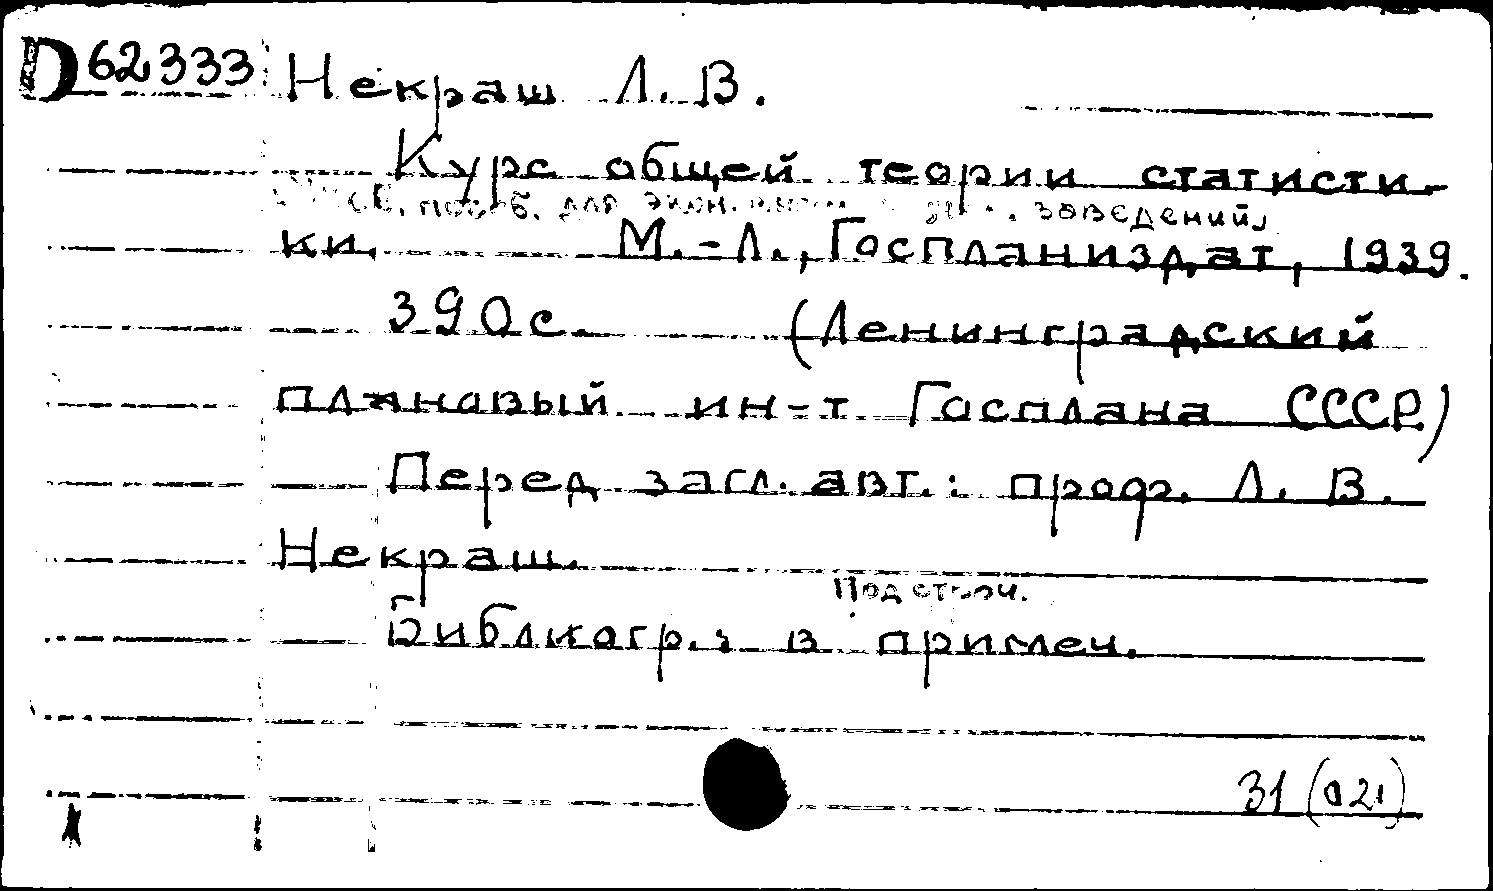 D 62333 Некраш Л. В.
Курс общей теории статисти-
пособ. для экон. заведений,
ки. М.-Л., Госпланиздат, 1939.
390 с. (Ленинградский
плановый ин-т Госплана СССР)
Перед загл. авт.: проф. Л. В.
Некраш.
Под строч.
Библиогр.: в примеч.
31 (021)